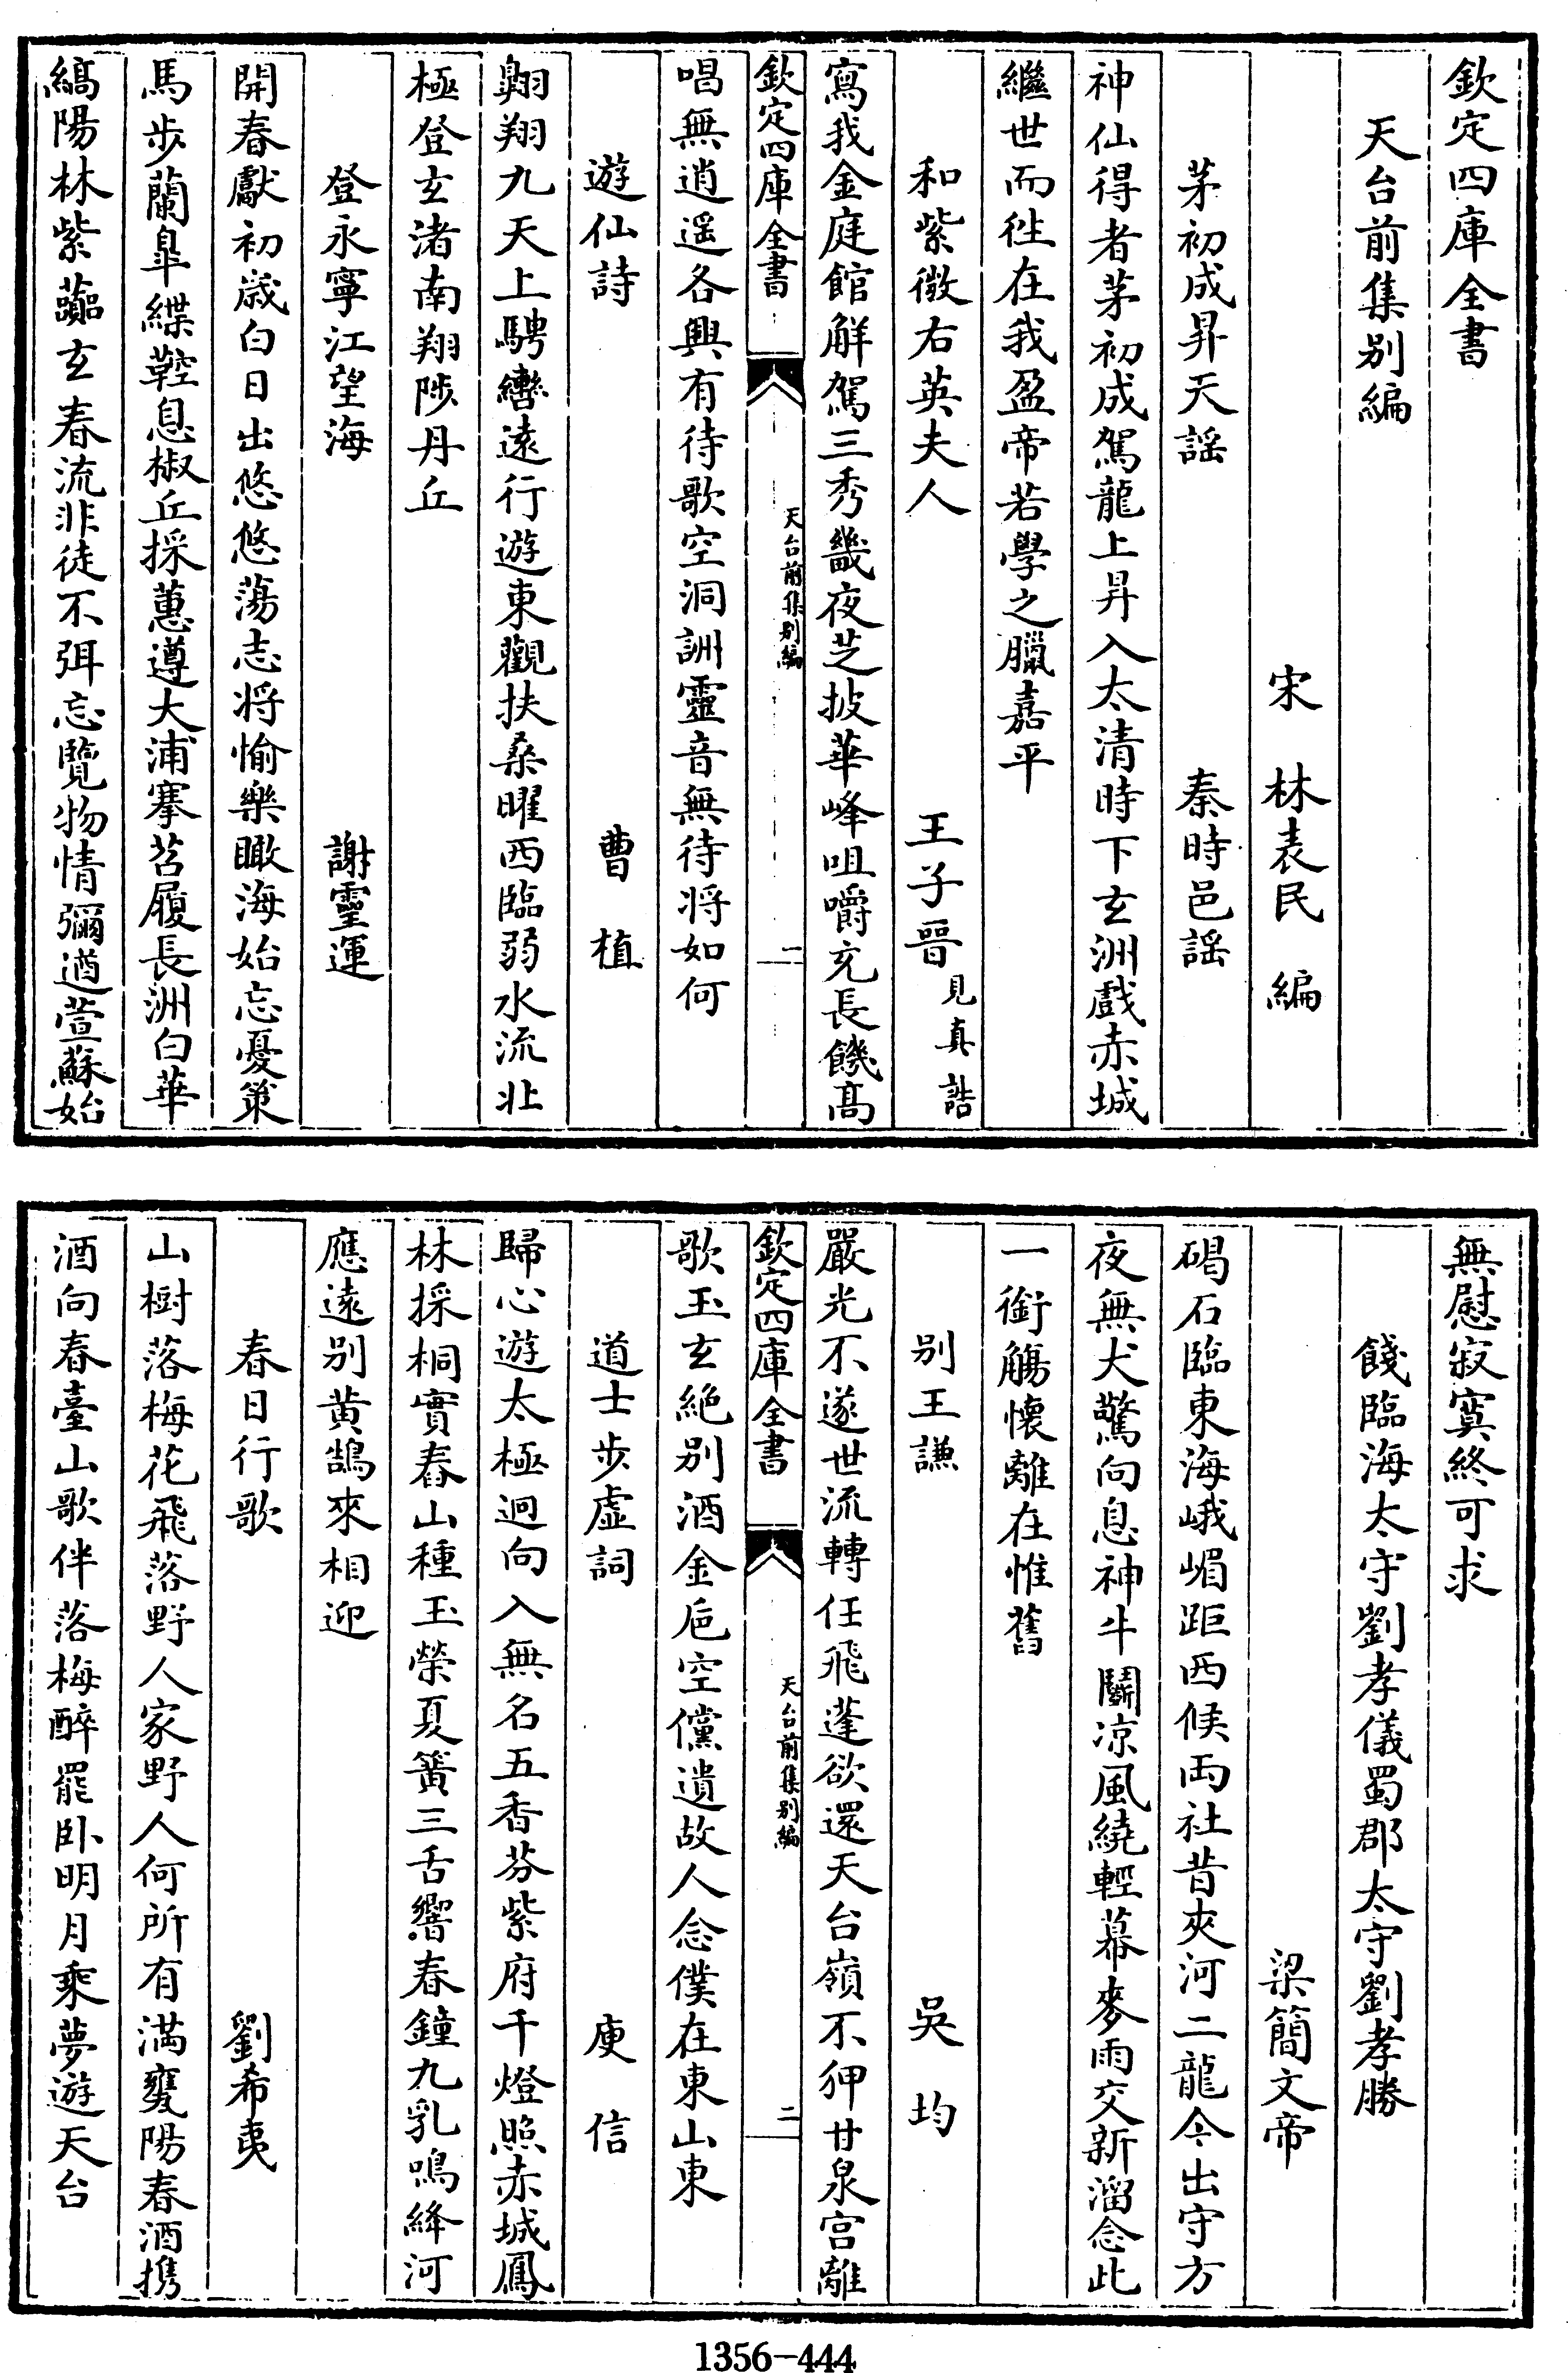 欽定四庫全書
天台前集别編
宋 林表民 編
茅初成昇天謡 秦時邑謡
神仙得者茅初成駕龍上昇入太清時下玄洲戲赤城
繼世而徃在我盈帝若學之臘嘉平
和紫微右英夫人 王子晉見真誥
寫我金庭館解駕三秀畿夜芝披華峰咀嚼充長饑髙
欽定四庫全書
天台前集别編
一
唱無逍遥各興有待歌空洞詶靈音無待将如何
遊仙詩 曹植
翺翔九天上騁轡遠行遊東觀扶桑曜西臨弱水流北
極登玄渚南翔陟丹丘
登永寧江望海 謝靈運
開春獻初歳白日出悠悠蕩志将愉樂瞰海始忘憂策
馬步蘭臯緤鞚息椒丘採蕙遵大浦搴茗履長洲白華
縞陽林紫虈玄春流非徒不弭忘覽物情彌遒萱蘇始
無慰寂寞終可求
餞臨海太守劉孝儀蜀郡太守劉孝勝
梁簡文帝
碣石臨東海峨嵋距西候両社昔夾河二龍今出守方
夜無犬驚向息神牛鬬凉風繞輕幕麥雨交新溜念此
一銜觴懷離在惟舊
别王謙 吳均
嚴光不遂世流轉任飛蓬欲還天台嶺不狎甘泉宫離
欽定四庫全書
天台前集别編
二
歌玉玄絶别酒金巵空儻遺故人念僕在東山東
道士步虚詞 庾信
歸心遊太極迥向入無名五香芬紫府千燈照赤城鳳
林採桐實春山種玉榮夏簧三舌響春鐘九乳鳴絳河
應遠别黄鵠來相迎
春日行歌 劉希夷
山樹落梅花飛落野人家野人何所有滿甕陽春酒携
酒向春臺山歌伴落梅醉罷卧明月乘夢遊天台
1356-444